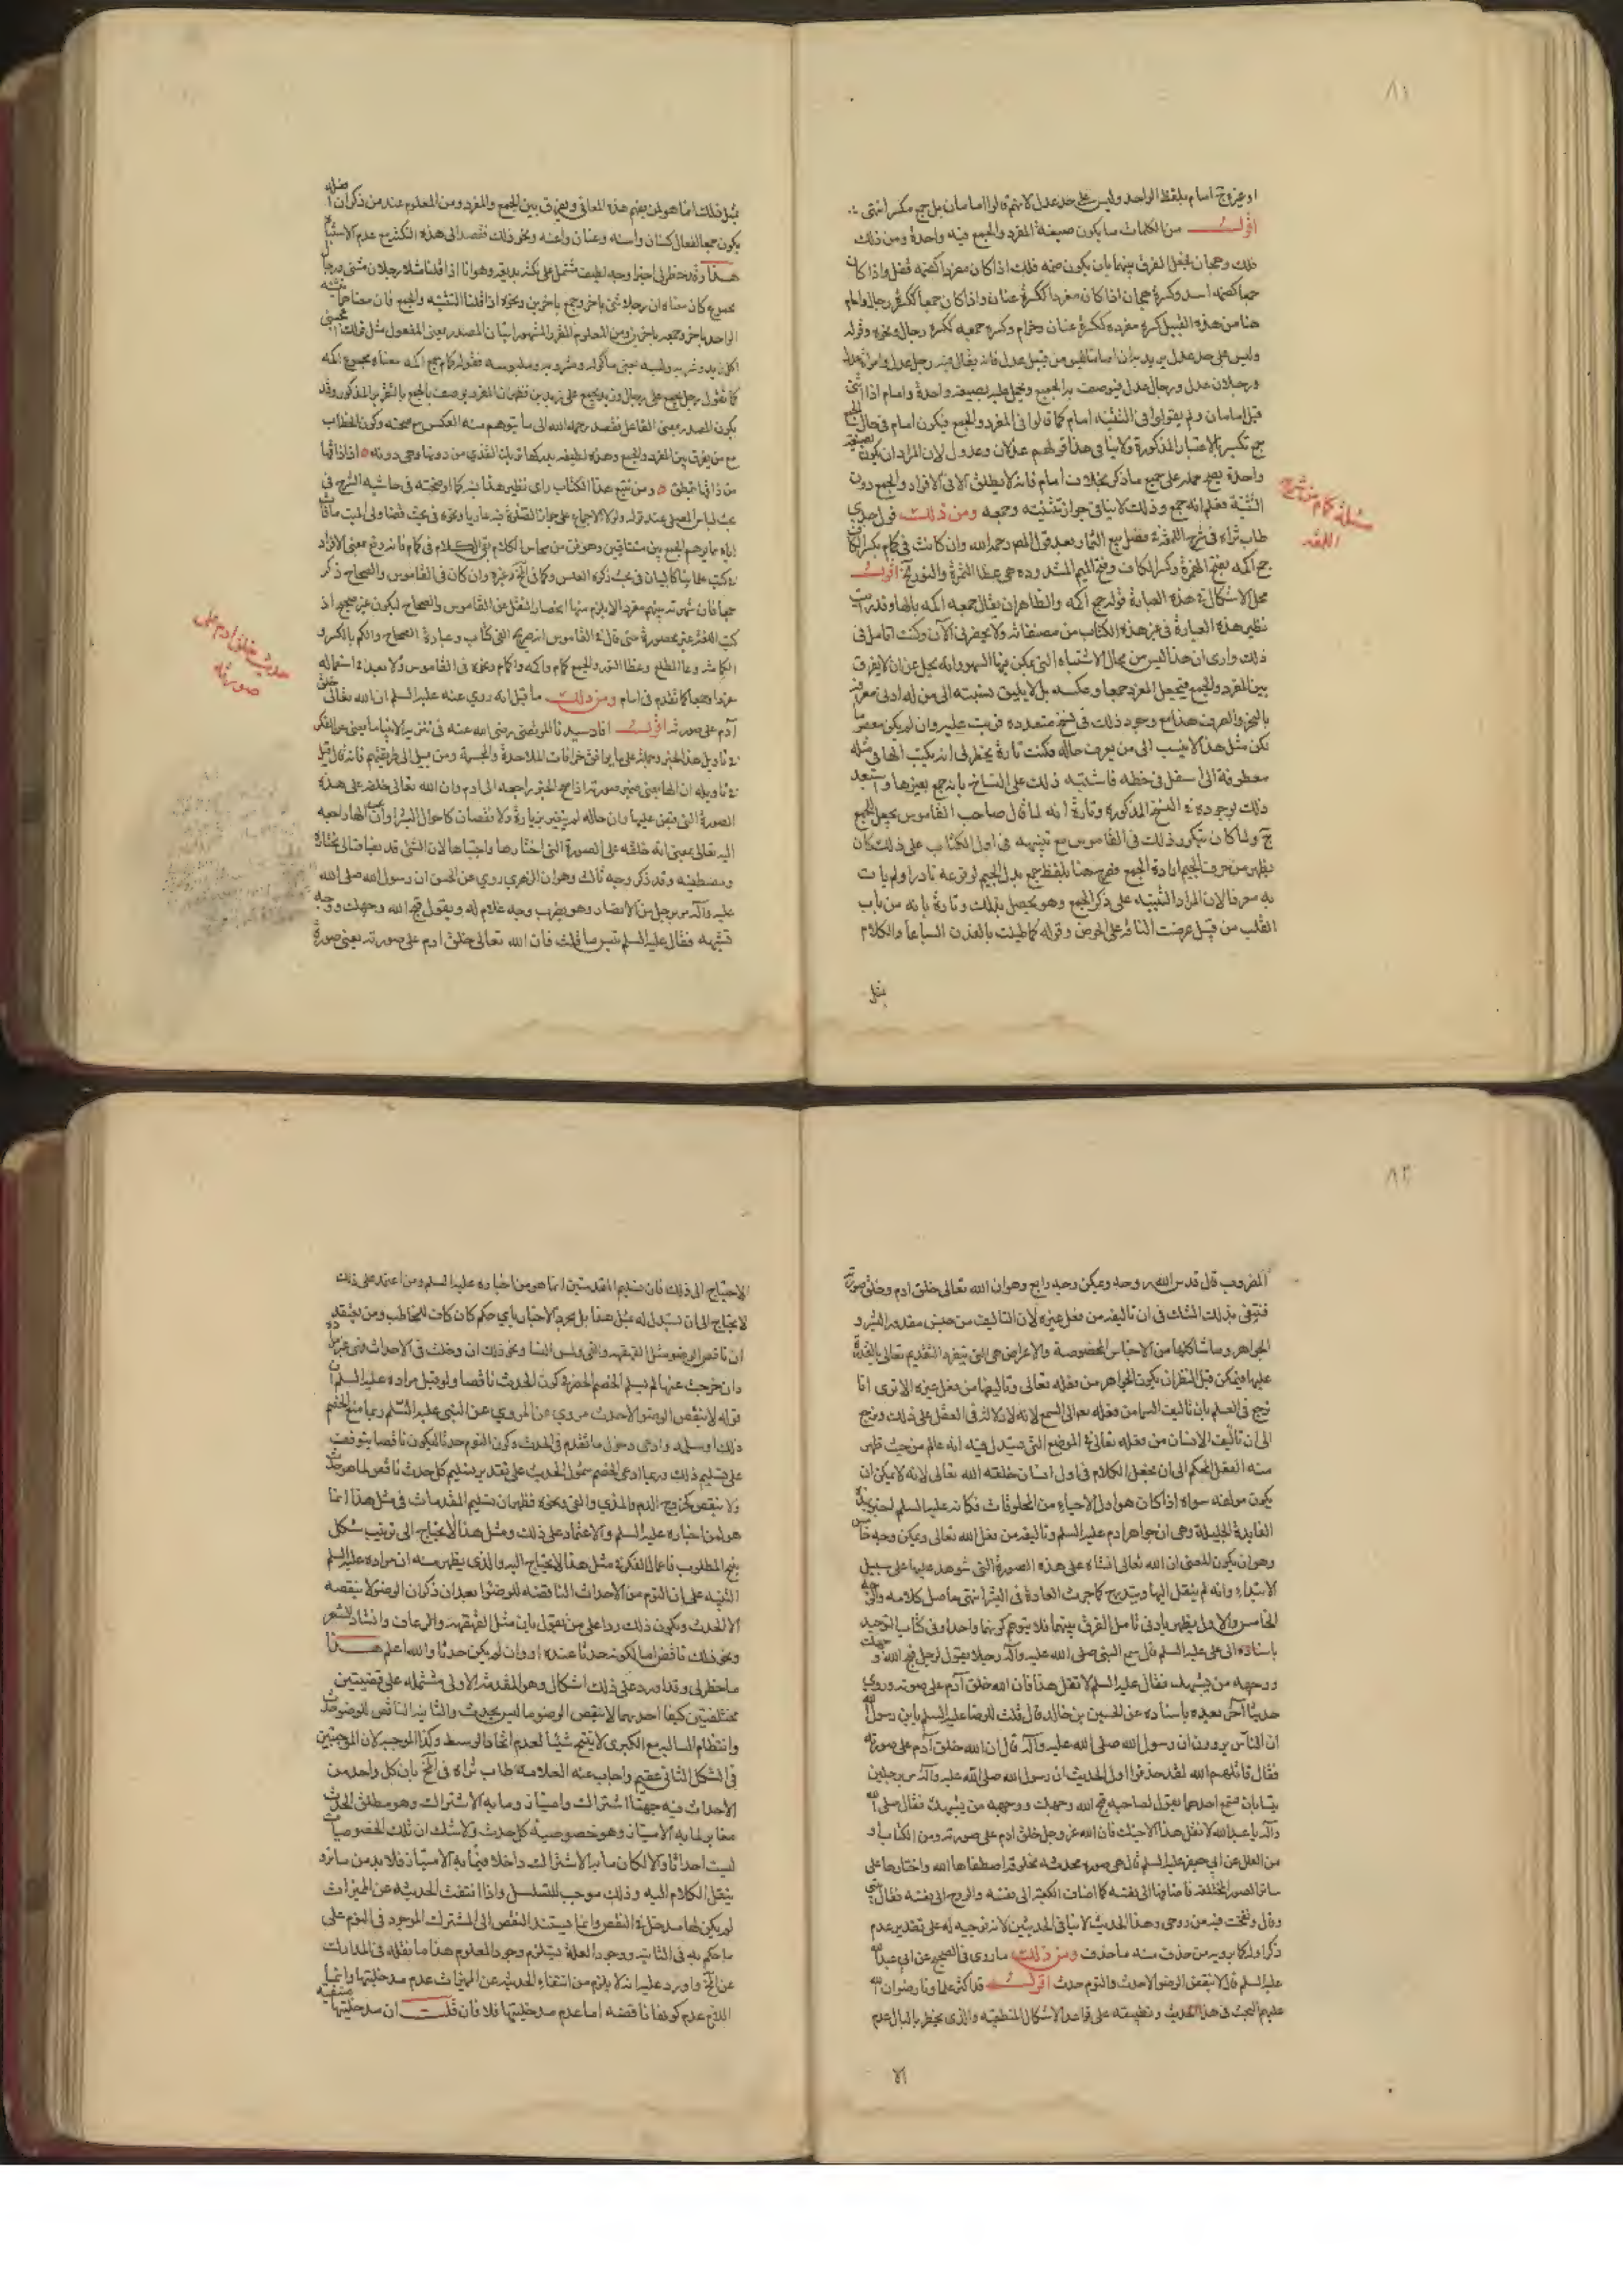 ٨١
او عين وج امام بلفظ الواحد وليس على حد عدل لانهم قالوا امامان بل جمع مكسر انتهى
اقول من الكلمات ما يكون صيغة المفرد والجمع فيه واحدة ومن ذلك
فلك وهجان فجعل الفرق بينهما بان يكون ضمه فلك اذا كان مفردا كضمة قفل واذا كان
جمعا كضمة اسد وكسرة هجان اذا كان مفردا ككسرة عنان واذا كان جمعا ككسرة رجال وامام
هنا من هذه القبيل كسرة مفرده ككسرة عنان وحزام وكسرة جمعه ككسرة رجال ونحوه وقوله
وليس على حد عدل يريد به ان اماما ليس من قبيل عدل فانه يقال فيه رجل عدل وامراة عدل
ورجلان عدل ورجال عدل فيوصف به الجميع ويحمل عليه بصيغة واحدة وامام اذا ثنى
قيل امامان ولم يقولوا في التثنية امام كما قالوا في المفرد والجمع فيكون امام في حال الجمع
جمع تكسير بالاعتبار المذكورة ولا ينافي هذا قولهم عدلان وعدول لان المراد ان يكون بصيغة
واحدة يصح حمله على جميع ما ذكر بخلاف امام فانه لا يطلق الا في الافراد والجمع دون
التثنية فعلم انه جمع وذلك لا ينافي جواز تثنيته وجمعه ومن ذلك قول جدي
طاب ثراه في شرح اللمعة في فصل بيع الثمار بعد قول المص رحمه الله وان كانت في كمام بكسر الكاف
جمع اكمه بفتح الهمزة وكسر الكاف وفتح الميم المشددة وهي غطاء الثمرة والنور الخ اقول
محل الاشكال في هذه العبارة قوله جمع اكمه والظاهر ان يقال جمعه اكمه بالهاء وقد رايت
نظير هذه العبارة في غير هذه الكتاب من مصنفاته ولا يحضرني الآن وكنت اتامل في
ذلك وارى ان هذا ليس من محال الاشتباه التي يمكن فيها السهو وانه يجل عن ان لا يفرق
بين المفرد والجمع فيجعل المفرد جمعا وعكسه بل لا يليق نسبته الى من له ادنى معرفة
بالنحو والصرف هذا مع وجود ذلك في نسخ متعدده قريت عليه وان لم يكن معصوما
لكن مثل هذا لا ينسب الى من يعرف حاله فكنت تارة يخطر لي انه يكتب الهاء في مثله
معطوفة الى اسفل في خطه فاشتبه ذلك على النساخ بانه جمع بغيرها واستبعد
ذلك لوجوده في النسخ المذكورة وتارة انه لما قال صاحب القاموس يجعل للجمع
ج ولما كان يتكرر ذلك في القاموس مع تنبيهه في اول الكتاب على ذلك كان
يظهر من حرف الجيم ارادة الجمع فصرح هنا بلفظ جمع بدل الجيم لوقوعه نادرا ولم يات
به معرفا لان المراد التنبيه على ذكر الجمع وهو يحصل بذلك وتارة بانه من باب
القلب من قبيل عرضت الناقة على الحوض وقوله كما طينت بالفدن السياعا والكلام
مثل
مسئلة كمام من شرح
اللمعه
مثل ذلك انما هو لمن يفهم هذه المعاني ويفرق بين الجمع والمفرد ومن المعلوم عند من ذكر ان افعله
يكون جمعا لفعال كسنان واسنه وعنان واعنه ونحو ذلك فقصد الى هذه النكتة مع عدم الاشتباه
هذا وقد خطر لي اخيرا وجه لطيف مشتمل على نكتة بديعه وهو انا اذا قلنا مثلا رجلان مثنى ورجال
مجموع كان معناه ان رجلا ثني باخر وجمع باخرين ونحوه اذا قلنا التثنيه والجمع فان معناهما تثنية
الواحد باخر وجمعه باخرين ومن المعلوم المقرر المشهور اتيان المصدر بمعنى المفعول مثل قولك اعجبني
اكل زيد وشربه ولبسه بمعنى ماكوله ومشروبه وملبوسه فقوله كمام جمع اكمه معناه مجموع اكمه
كما تقول رجل يجمع على رجال وزيد يجمع على زيدين فظهر ان المفرد يوصف بالجمع بالتقرير المذكور وقد
يكون المصدر بمعنى الفاعل فقصد رحمه الله الى ما يتوهم منه العكس مع صحته وكون الخطاب
مع من يفرق بين المفرد والجمع وهذه لطيفه يدركها تريك القذى من دونها وهي دونه اذا ذاقها
من ذاقها يتمطق ومن تتبع هذا الكتاب راى نظير هذا فيه كما اوضحته في حاشية الشرح في
بحث لباس المصلي عند قوله ولولا الاجماع على جواز الصلوة فيه عاريا ونحوه في بحث قضاء ولي الميت ما فات
اباه مما يوهم الجمع بين متنافيين وهو فن من محاسن الكلام بقي الكلام في كمام فانه وقع بمعنى الافراد
في كتب علمائنا كالبيان في بحث زكوة الغلس وكما في الخ وغيره وان كان في القاموس والصحاح ذكر
جمعا فان شهرته بينهم مفردا لا يلزم منها انحصار النقل عن القاموس والصحاح ليكون غير صحيح اذ
كتب اللغة غير محصورة حتى قال في القاموس انه صريح الفي كتاب وعبارة الصحاح والكم بالكسر و
الكمامة وعاء الطلع وغطاء النور والجمع كمام واكمه واكمام ونحوه في القاموس ولا بعد في استعماله
مفردا وجمعا كما تقدم في امام ومن ذلك ما قيل انه روي عنه عليه السلم ان الله تعالى خلق
آدم على صورته اقول افاد سيدنا المرتضى رضي الله عنه في تنزيه الانبيا ما يغني عن الفكر
في تاويل هذا الخبر وحمله على ما يوافق خرافات الملاحدة والمجسمة ومن يميل الى طريقتهم فانه قال قيل
في تاويله ان الهاء يعني ضمير صورته اذا صح الخبر راجعه الى ادم وان الله تعالى خلقه على هذه
الصورة التي قبض عليها وان حاله لم يتغير بزيادة ولا نقصان كاحوال البشر او ان الهاء راجعه
اليه تعالى بمعنى انه خلقه على الصورة التي اختارها واجتباها لان الشئ قد يضاف الى مختاره
ومصطفيه وقد ذكر وجه ثالث وهو ان الزهري روى عن الحسن ان رسول الله صلى الله
عليه وآله مر برجل من الانصار وهو يضرب وجه غلام له ويقول قبح الله وجهك ووجه من
تشبهه فقال عليه السلم بئس ما قلت فان الله تعالى خلق ادم على صورته يعني صورة
حديث خلق ادم على
صورته
٨٢
المضروب قال قدس الله روحه ويمكن وجه رابع وهو ان الله تعالى خلق ادم وخلق صورته
فينتفي بذلك الشك في ان تاليفه من فعل غيره لان التاليف من جنس مقدور البشر و
الجواهر وما شاكلها من الاجناس المخصوصة والاعراض هي التي ينفرد القديم تعالى بالقدرة
عليها فيمكن قبل النظر ان يكون الجواهر من فعله تعالى وتاليفها من فعل غيره الا ترى انا
نرجع في العلم بان تاليف السما من فعله تعالى الى السمع لانه لا دلالة في العقل على ذلك ونرجع
الى ان تاليف الانسان من فعله تعالى في الموضع الذي يستدل فيه انه عالم من حيث ظهر
منه الفعل المحكم الى ان يجعل الكلام في اول انسان خلقه الله تعالى لانه لا يمكن ان
يكون مولفه سواه اذا كان هو اول الاحياء من المخلوقات فكانه عليه السلم اخبر بهذه
الفايدة الجليلة وهي ان جواهر ادم عليه السلم وتاليفه من فعل الله تعالى ويمكن وجه خامس
وهو ان يكون المعنى ان الله تعالى انشاه على هذه الصورة التي شوهد عليها على سبيل
الابتداء وانه لم ينتقل اليها ويتدرج كما جرت العادة في البشر انتهى حاصل كلامه والوجه
الخامس والاول يظهر بادنى تامل الفرق بينهما فلا يتوهم كونهما واحدا وفي كتاب التوحيد
باسناده الى علي عليه السلم قال سمع النبي صلى الله عليه وآله رجلا يقول لرجل قبح الله وجهك
ووجه من يشبهك فقال عليه السلم لا تقل هذا فان الله خلق آدم على صورته وروي
حديثا آخر بعده باسناده عن الحسين بن خالد قال قلت للرضا عليه السلم يا بن رسول الله
ان الناس يروون ان رسول الله صلى الله عليه وآله قال ان الله خلق آدم على صورته
فقال قاتلهم الله لقد حذفوا اول الحديث ان رسول الله صلى الله عليه وآله مر برجلين
يتسابان فسمع احدهما يقول لصاحبه قبح الله وجهك ووجه من يشبهك فقال صلى الله
وآله يا عبد الله لا تقل هذا لاخيك فان الله عز وجل خلق ادم على صورته ومن الكتاب و
من العلل عن ابي جعفر عليه السلم قال هي صورة محدثه مخلوقة اصطفاها الله واختارها على
سائر الصور المختلفه فاضافها الى نفسه كما اضاف الكعبة الى نفسه والروح الى نفسه فقال بيتي
وقال ونفخت فيه من روحي وهذا الحديث لا ينافي الحديثين لانه توجيه له على تقدير عدم
ذكر اوله كما يرويه من حذف منه ما حذف ومن ذلك ما روي في الصحيح عن ابي عبد الله
عليه السلم قال لا ينقض الوضوء الا حدث والنوم حدث اقول قد اكثر علماونا رضوان الله
عليهم البحث في هذا الحديث وتطبيقه على قواعد الاشكال المنطقيه والذي يخطر بالبال عدم
الا
الاحتياج الى ذلك فان تسليم المقدمتين انما هو من اخباره عليه السلم ومن اعتمد على ذلك
لا يحتاج الى ان يستدل له بمثل هذا بل بمجرد الاخبار باي حكم كان كات للمخاطب ومن يعتقد
ان ناقض الوضوء مثل القهقهه والقي ولمس النسا ونحو ذلك ان دخلت في الاحداث فهي غيرها
وان خرجت عنها لم يسلم الخصم الحصر في كون الحدث ناقضا ولو قيل مراده عليه السلم ان
قوله لا ينقض الوضوء الا حدث مروي عن المروي عن النبي عليه السلم ربما منع الخصم
ذلك او سلمه وادعى دخول ما تقدم في الحدث وكون النوم حدثا ليكون ناقضا يتوقف
على تسليم ذلك وربما ادعى الخصم شمول الحديث على تقدير تسليم كل حدث ناقض لما هو حدث
ولا ينقض كخروج الدم والمذي والقي ونحوه فظهر ان تسليم المقدمات في مثل هذا انما
هو من اخباره عليه السلم والاعتماد على ذلك ومثل هذا لا يحتاج الى ترتيب شكل
ينتج المطلوب فاعمال الفكر في مثل هذا لا يحتاج اليه والذي يظهر منه ان مراده عليه السلم
التنبيه على ان النوم من الاحداث الناقضه للوضوء بعد ان ذكر ان الوضوء لا ينقضه
الا الحدث ويكون ذلك ردا على من يقول بان مثل القهقهه والرعاف وانشاد الشعر
ونحو ذلك ناقض اما لكونه حدثا عنده او وان لم يكن حدثا والله اعلم هذا
ما خطر لي وقد اورد على ذلك اشكال وهو ان المقدمة الاولى مشتمله على قضيتين
مختلفتين كيفا احديهما لا ينقض الوضوء ما ليس بحدث والثانيه الناقض للوضوء حدث
وانتظام السالبه مع الكبرى لا ينتج شيئا لعدم اتحاد الوسط وكذا الموجبه لان الموجبتين
في الشكل الثاني عقيم واجاب عنه العلامه طاب ثراه في الخ بان كل واحد من
الاحداث فيه جهتا اشتراك وامتياز وما به الاشتراك وهو مطلق الحدث
مغاير لما به الامتياز وهو خصوصية كل حدث ولا شك ان تلك الخصوصيات
ليست احداثا والا لكان ما به الاشتراك داخلا فيما به الامتياز فلا بد من مائز و
ينقل الكلام اليه وذلك موجب للتسلسل واذا انتفت الحدثيه عن المميزات
لم يكن لها مدخل في النقض وانما يستند النقض الى المشترك الموجود في النوم على
ما حكم به في الثانيه ووجود العلة يستلزم وجود المعلوم هذا ما نقله في المدارك
عن الخ واورد عليه انه لا يلزم من انتفاء الحدثيه عن المميزات عدم مدخليتها وانما
اللازم عدم كونها ناقضه اما عدم مدخليتها فلا فان قلت ان مدخليتها منفيه